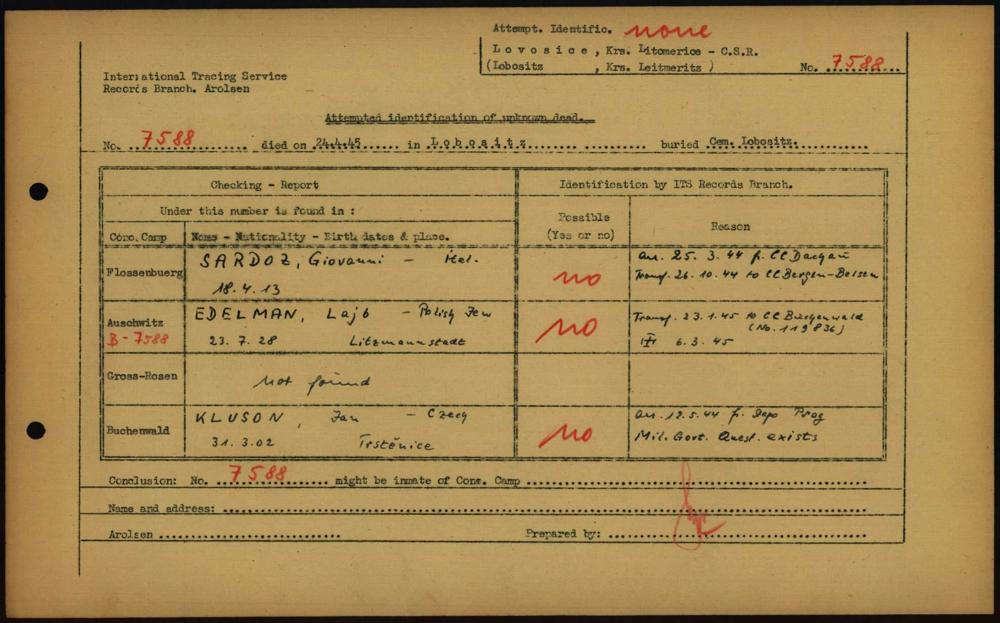 Attempt. Identific. none
Lovosice, Krs. Litomerice - C.S.R.
(Lobositz , Krs. Leitmeritz )
No. 7588
International Tracing Service
Records Branch. Arolsen
Attempted identification of unknown dead.
No. 7588 died on 24.4.45 in Lobositz buried Cem. Lobositz.
Checking - Report
Identification by ITS Records Branch.
Under this number is found in :
Possible
(Yes or no)
Reason
Conc. Camp
Name - Nationality - Birth dates & place.
Flossenbuerg
SARDOZ, Giovanni - Ital.
18.4.13
no
arr. 25. 3. 44 f. CC Dachau
Transf. 26. 10. 44 to CC Bergen-Belsen
Auschwitz
B-7588
EDELMAN, Lajb - Polish Jew
23. 7. 28 Litzmannstadt
no
Transf. 23.1.45 to CC Buchenwald
(No. 119836)
6.3.45
Gross-Rosen
not found
Buchenwald
KLUSON, Jan - Czech
31. 3. 02 Trstěnice
no
arr. 12.5.44 fr. Prag
Mil. Govt. Quest. exists
Conclusion: No. 7588 might be inmate of Conc. Camp
Name and address:
Arolsen
Prepared by: